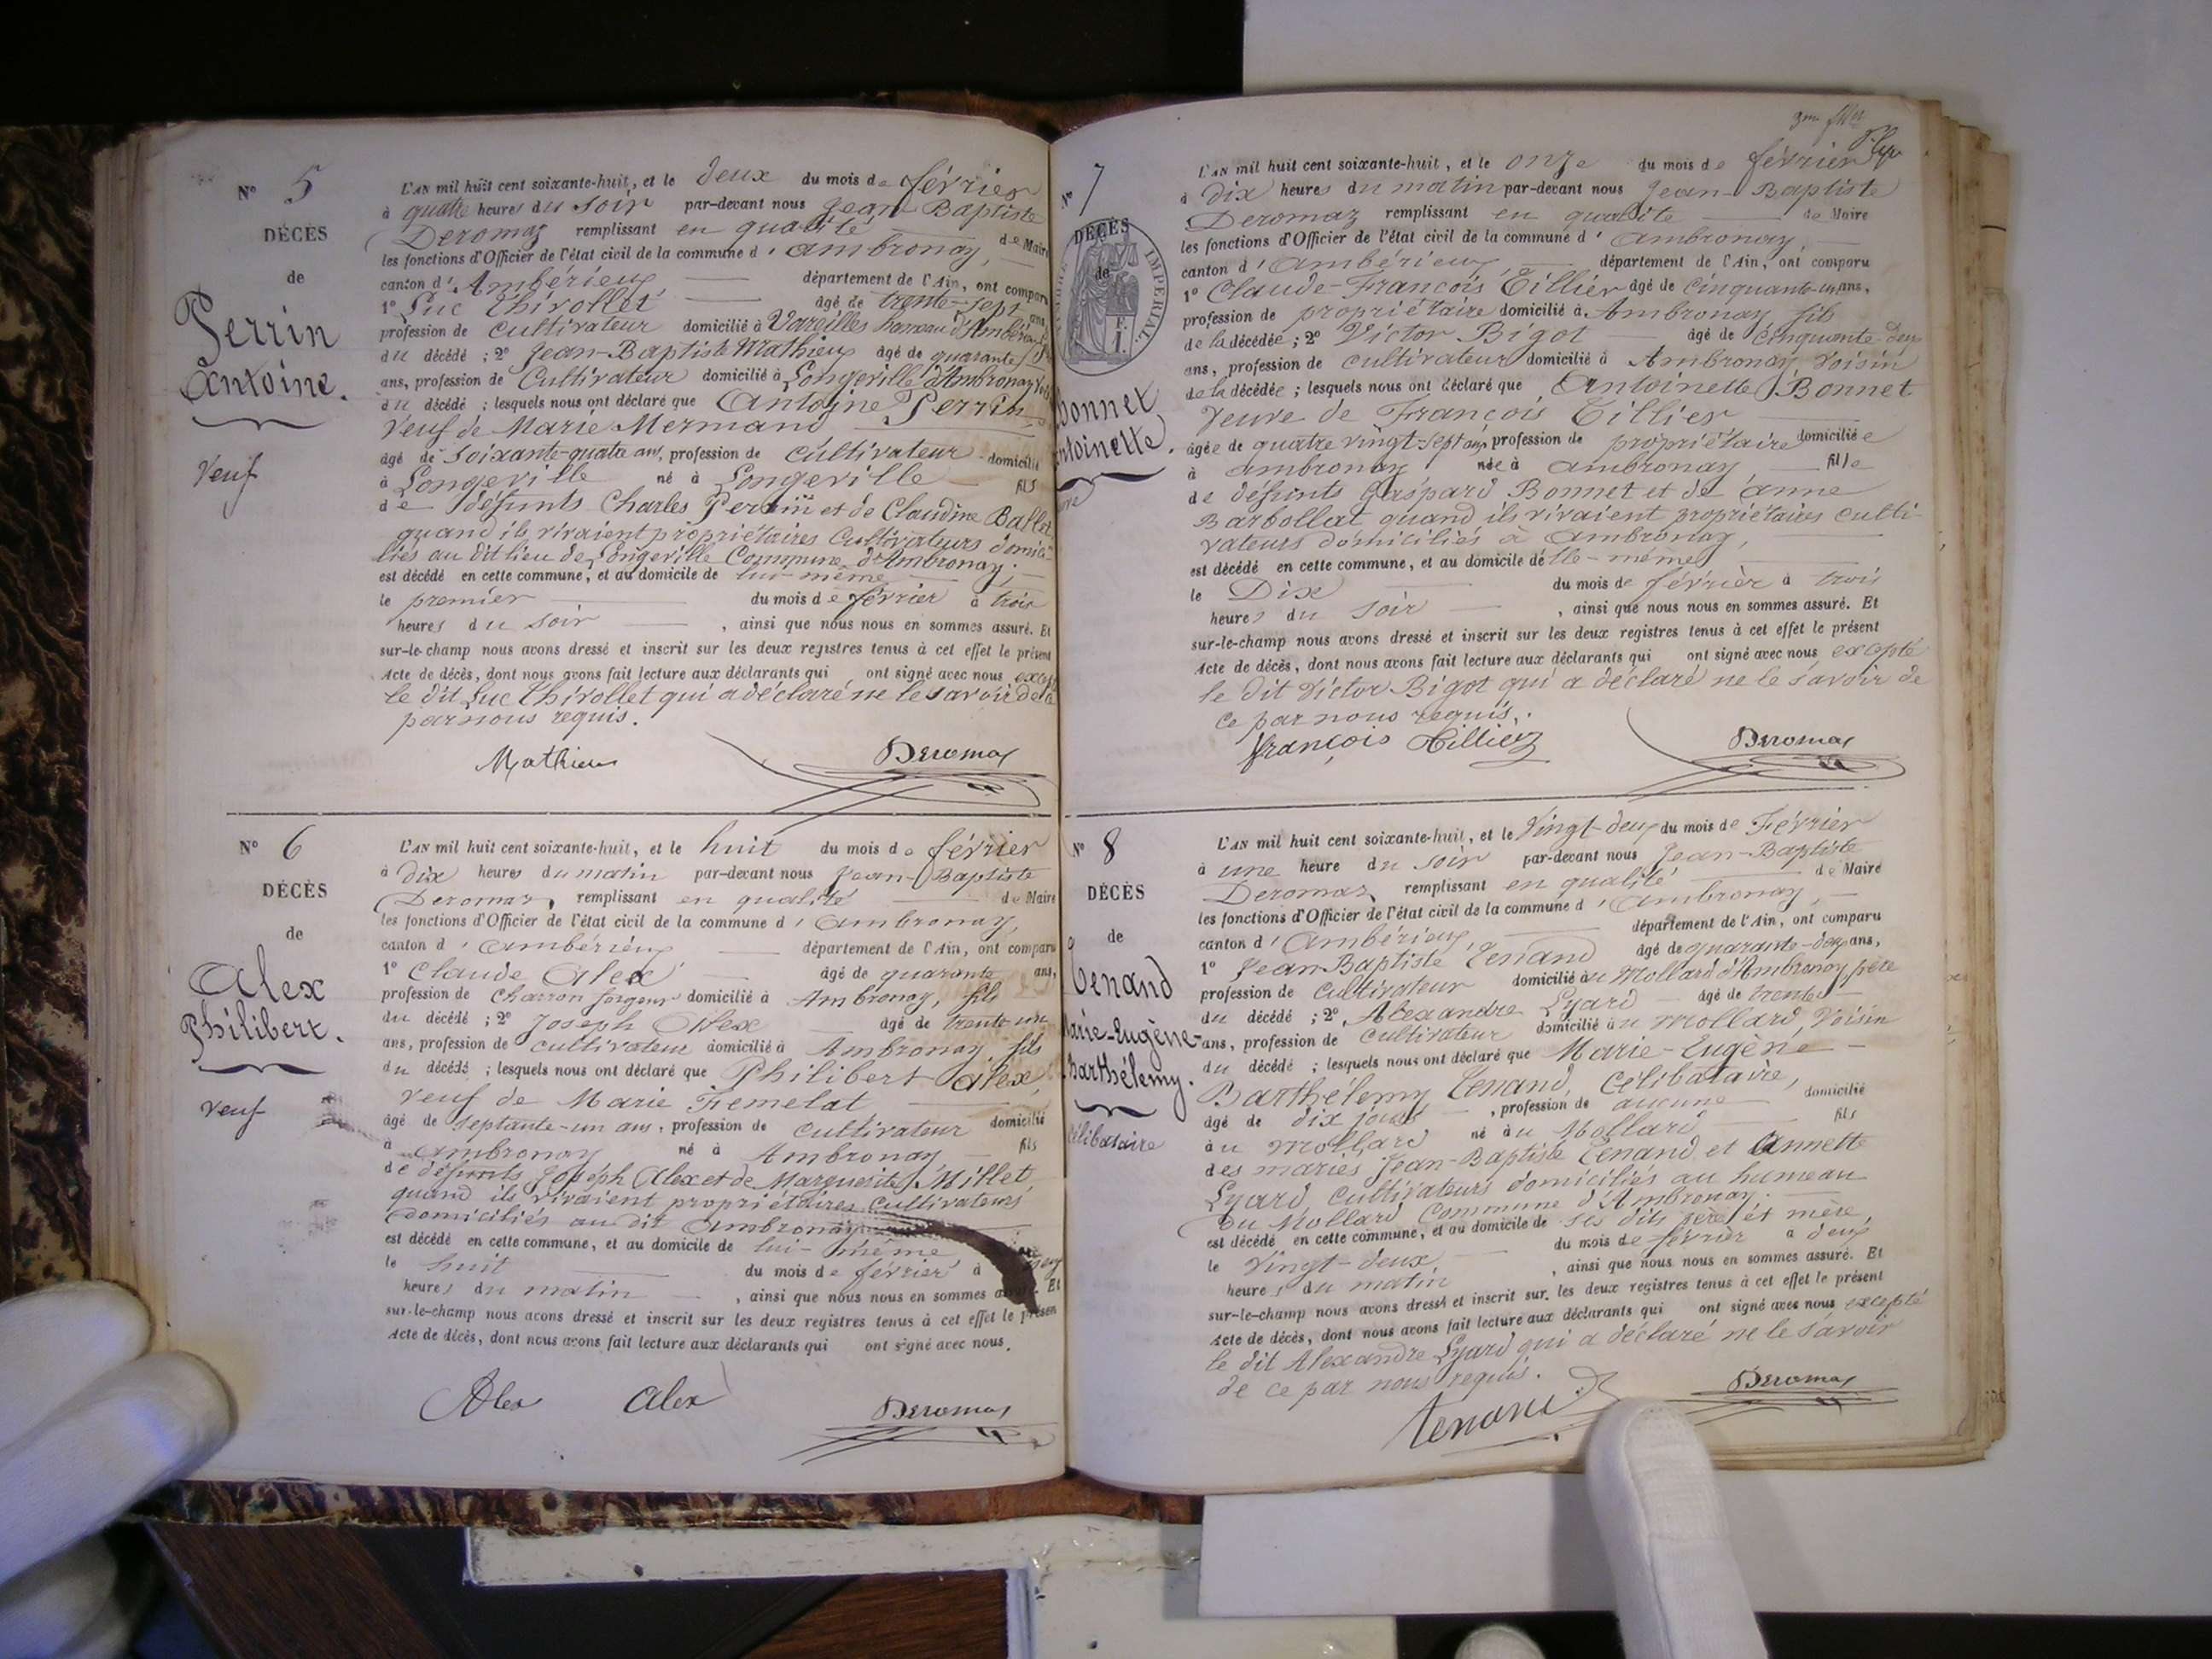 N° 5
DÉCÈS
de
Perrin
Antoine.
Veuf
L'AN mil huit cent soixante-huit, et le deux du mois de février
à quatre heures du soir par-devant nous Jean-Baptiste
Deromaz remplissant en qualité de Maire
les fonctions d'Officier de l'état civil de la commune d'Ambronay,
canton d'Ambérieux département de l'Ain, ont comparu
1° Luc Thivollet âgé de trente-sept ans,
profession de cultivateur domicilié à Vareilles hameau d'Ambérieux
du décédé ; 2° Jean-Baptiste Mathieux âgé de quarante
ans, profession de Cultivateur domicilié à Longeville d'Ambronay
du décédé ; lesquels nous ont déclaré que Antoine Perrin
Veuf de Marie Mermand
âgé de soixante-quatre ans, profession de cultivateur domicilié
à Longeville né à Longeville fils
de défunts Charles Perrin et de Claudine Ballet
quand ils vivaient propriétaires Cultivateurs domici-
liés au dit lieu de Longeville Commune d'Ambronay ;
est décédé en cette commune, et au domicile de lui-même
le premier du mois de février à trois
heures du soir, ainsi que nous nous en sommes assuré. Et
sur-le-champ nous avons dressé et inscrit sur les deux registres tenus à cet effet le présent
Acte de décès, dont nous avons fait lecture aux déclarants qui ont signé avec nous
le dit Luc Thivollet qui a déclaré ne le savoir de ce
par nous requis.
Mathieux Deromaz
N° 6
DÉCÈS
de
Alex
Philibert.
veuf
L'AN mil huit cent soixante-huit, et le huit du mois de février
à dix heures du matin par-devant nous Jean-Baptiste
Deromaz, remplissant en qualité de Maire
les fonctions d'Officier de l'état civil de la commune d'Ambronay,
canton d'Ambérieux département de l'Ain, ont comparu
1° Claude Alex âgé de quarante ans,
profession de Charron forgeur domicilié à Ambronay, fils
du décédé ; 2° Joseph Alex âgé de trente-un
ans, profession de cultivateur domicilié à Ambronay, fils
du décédé ; lesquels nous ont déclaré que Philibert Alex,
veuf de Marie Femelat
âgé de septante-un ans, profession de cultivateur domicilié
à Ambronay né à Ambronay fils
de défunts Joseph Alex et de Marguerite Millet
quand ils vivaient propriétaires Cultivateurs
domiciliés au dit Ambronay
est décédé en cette commune, et au domicile de lui-même
le huit du mois de février à
heures du matin, ainsi que nous nous en sommes assuré. Et
sur-le-champ nous avons dressé et inscrit sur les deux registres tenus à cet effet le présent
Acte de décès, dont nous avons fait lecture aux déclarants qui ont signé avec nous.
Alex Alex Deromaz
N° 7
DÉCÈS
de
IMPÉRIAL
Bonnet
Antoinette.
L'AN mil huit cent soixante-huit, et le onze du mois de février
à dix heures du matin par-devant nous Jean-Baptiste
Deromaz remplissant en qualité de Maire
les fonctions d'Officier de l'état civil de la commune d'Ambronay,
canton d'Ambérieux département de l'Ain, ont comparu
1° Claude-François Tillier âgé de cinquante-un ans,
profession de propriétaire domicilié à Ambronay fils
de la décédée ; 2° Victor Bigot âgé de cinquante-deux
ans, profession de cultivateur domicilié à Ambronay Voisin
de la décédée ; lesquels nous ont déclaré que Antoinette Bonnet
Veuve de François Tillier
âgée de quatre vingt-sept ans, profession de propriétaire domiciliée
à Ambronay née à Ambronay, fille
de défunts Gaspard Bonnet et de Anne
Barbollat quand ils vivaient propriétaires culti-
vateurs domiciliés à Ambronay,
est décédé en cette commune, et au domicile de elle-même
le Dix du mois de février à trois
heures du soir, ainsi que nous nous en sommes assuré. Et
sur-le-champ nous avons dressé et inscrit sur les deux registres tenus à cet effet le présent
Acte de décès, dont nous avons fait lecture aux déclarants qui ont signé avec nous excepté
le dit Victor Bigot qui a déclaré ne le savoir de
ce par nous requis.
François Tillier Deromaz
N° 8
DÉCÈS
de
Tenand
Marie-Eugène-
Barthélemy.
Célibataire
L'AN mil huit cent soixante-huit, et le Vingt-deux du mois de Février
à une heure du soir par-devant nous Jean-Baptiste
Deromaz remplissant en qualité de Maire
les fonctions d'Officier de l'état civil de la commune d'Ambronay,
canton d'Ambérieux, département de l'Ain, ont comparu
1° Jean-Baptiste Tenand âgé de quarante-deux ans,
profession de Cultivateur domicilié au Mollard d'Ambronay père
du décédé ; 2° Alexandre Lyard âgé de trente
ans, profession de cultivateur domicilié au Mollard, Voisin
du décédé ; lesquels nous ont déclaré que Marie-Eugène-
Barthélemy Tenand, Célibataire,
âgé de dix jours, profession de aucune domicilié
au Mollard né au Mollard fils
des mariés Jean-Baptiste Tenand et Annette
Lyard cultivateurs domiciliés au hameau
du Mollard Commune d'Ambronay.
est décédé en cette commune, et au domicile de ses dits père et mère,
le Vingt-deux, du mois de février à deux
heures du matin, ainsi que nous nous en sommes assuré. Et
sur-le-champ nous avons dressé et inscrit sur les deux registres tenus à cet effet le présent
Acte de décès, dont nous avons fait lecture aux déclarants qui ont signé avec nous excepté
le dit Alexandre Lyard qui a déclaré ne le savoir
de ce par nous requis.
Tenand Deromaz